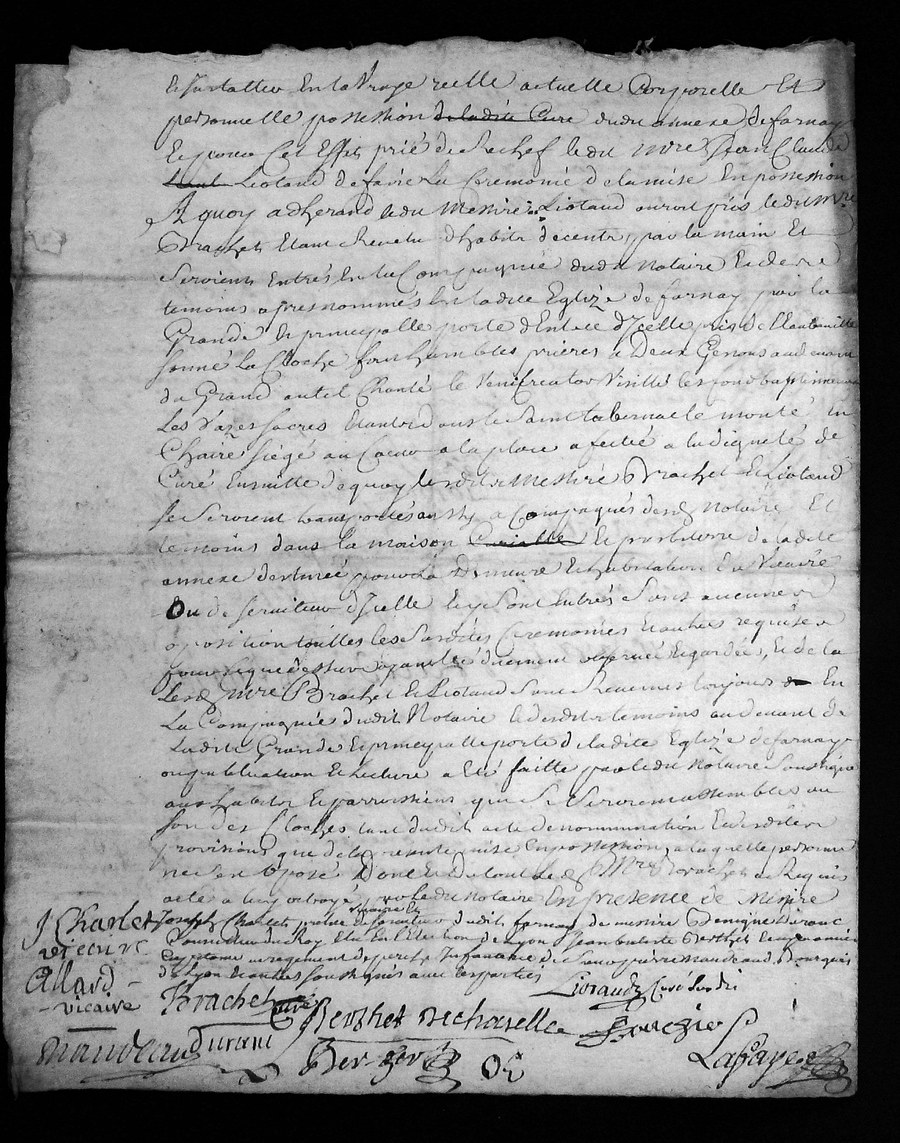 et installer En la Vraye reelle actuelle Corporelle Et
personnelle possession de ladite Cure dudit annexe de farnay
Et pour Cet Effet prié de Rechef ledit Mre Jean Claude
Liotaud de faire La Ceremonie de la mise En possession
A quoy adherand ledit Messire Liotaud auroit pris ledit Mre
Brachet Etant Revetu d'habits decents, par la main Et
Seroient Entrés En la Compagnie dudit Notaire Et des
temoins apres nommés En ladite Eglize de farnay par la
Grande Et principalle porte d'Entrée d'Icelle pris de l'Eau benitte
sonné La Cloche fait humbles prieres a Deux Genoux au devant
du Grand autel Chanté le Veni Creator Visitté les fonds baptismeaux
Les Vazes sacrés Etants dans le Saint tabernacle monté En
Chaire siegé au Coeur a la place afectée a la digneté de
Curé Ensuitte de quoy lesdits Messires Brachet Et Liotaud
se Seroient transportés aussy acompagnés desd Notaire Et
temoins dans la maison Curialle Et presbiterre de ladite
annexe destinée pour La Demeure Et habitation du Vicaire
Ou deserviteur d'Icelle Et y Sont Entrés Sans aucune
oposition touttes les Susdites Ceremonies Et autres requises
pour ayant été duement observées Et gardées, Et de la
Lesd Mre Brachet Et Liotaud Sont Revenus toujours En
La Compagnie dudit Notaire Et desdits temoins au devant de
Ladite Grande Et principalle porte de ladite Eglize de farnay
ou publication Et lecture a Eté faitte par ledit Notaire Soussigné
aux habitans Et parroissiens qui Se Seroient assemblés au
son des Cloches tant dudit acte de nommination Et desdites
provisions que de la presente mise En possession, a laquelle personne
ne s'est Oposé Dont Et De tout led Mre Brachet a Requis
acte a luy octroyé par ledit Notaire En presence de Messire
Joseph Charlet pretre vicaire Et deserviteur dudit farnay de messire Benigne Durant
Conseiller du Roy Elu En l'Election de Lyon Jean baptiste Berthet Ecuyer ancien
Capitaine au regiment de Infanterie de Sieur pierre Naudeaud Bourgeois
de Lyon Et autres soussignés avec les parties
J Charlet
vicaire
Allard
vicaire
Brachet
curé
Liotaud Curé
Berthet Dechazelle
Durant
Lafaye